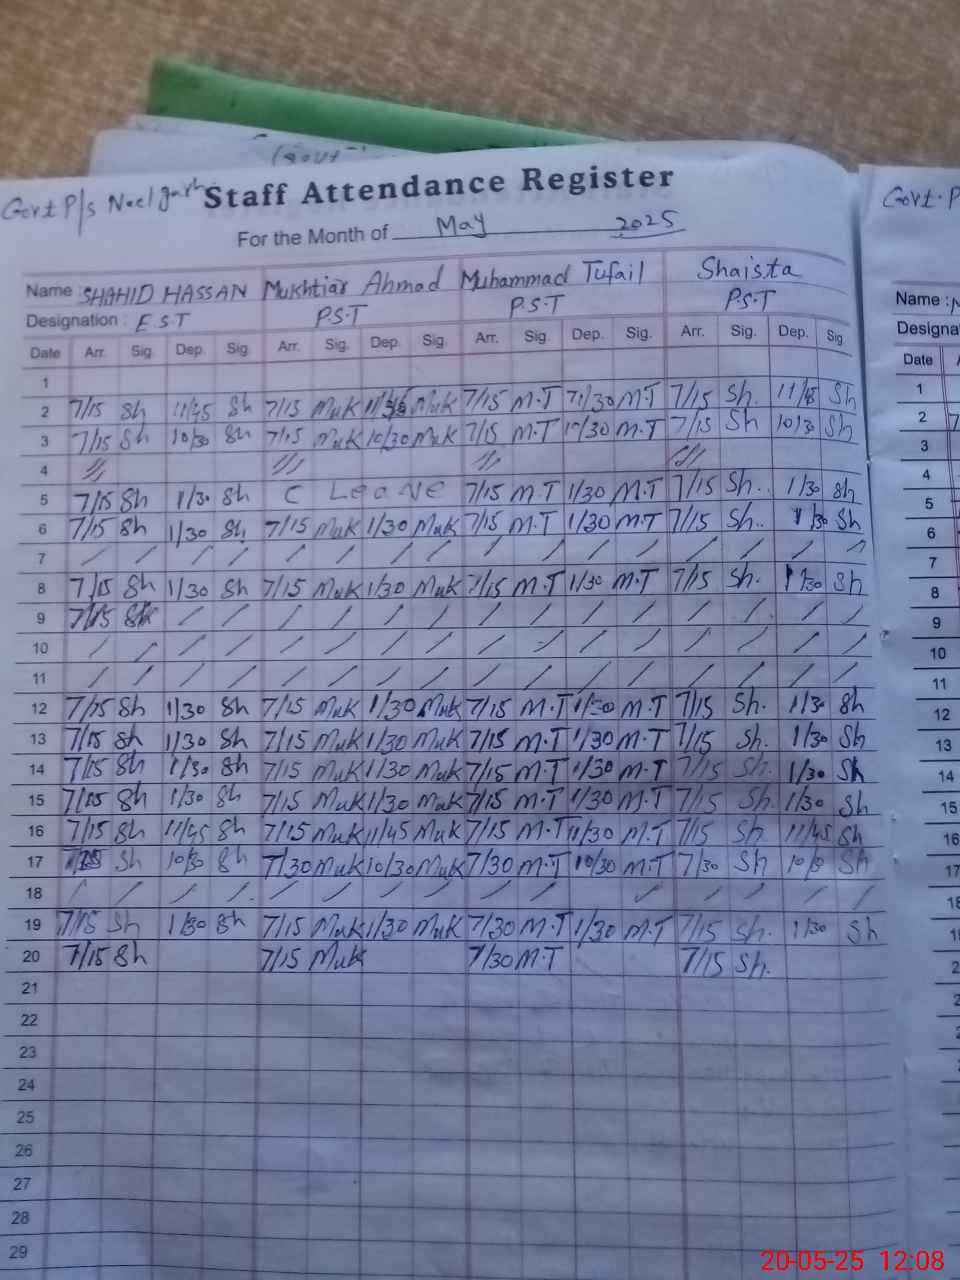 Govt P/s Neelgarh Staff Attendance Register
For the Month of May 2025
Name : SHAHID HASSAN Mukhtiar Ahmad Muhammad Tufail Shaista
Designation : E.S.T P.S.T P.S.T P.S.T
Date Arr. Sig. Dep. Sig. Arr. Sig. Dep. Sig. Arr. Sig. Dep. Sig. Arr. Sig. Dep. Sig
1
2 7/15 Sh 11/45 Sh 7/15 Muk Muk 7/15 M.T M.T 7/15 Sh. Sh
3 7/15 Sh 10/30 Sh 7/15 Muk 10/30 Muk 7/15 M.T 10/30 M.T 7/15 Sh 10/30 Sh
4 // /// // ///
5 7/15 Sh 1/30 Sh C Leave 7/15 M.T 1/30 M.T 7/15 Sh.. 1/30 Sh
6 7/15 Sh 1/30 Sh 7/15 Muk 1/30 Muk 7/15 M.T 1/30 M.T 7/15 Sh.. 1/30 Sh
7 / / / / / / / / / / / / / / / /
8 7/15 Sh 1/30 Sh 7/15 Muk 1/30 Muk 7/15 M.T 1/30 M.T 7/15 Sh. 1/30 Sh
9 7/15 Sh / / / / / / / / / / / / / /
10 / / / / / / / / / / / / / / / /
11 / / / / / / / / / / / / / / / /
12 7/15 Sh 1/30 Sh 7/15 Muk 1/30 Muk 7/15 M.T 1/30 M.T 7/15 Sh. 1/30 Sh
13 7/15 Sh 1/30 Sh 7/15 Muk 1/30 Muk 7/15 M.T 1/30 M.T 7/15 Sh. 1/30 Sh
14 7/15 Sh 1/30 Sh 7/15 Muk 1/30 Muk 7/15 M.T 1/30 M.T 7/15 Sh. 1/30 Sh
15 7/15 Sh 1/30 Sh 7/15 Muk 1/30 Muk 7/15 M.T 1/30 M.T 7/15 Sh. 1/30 Sh
16 7/15 Sh 11/45 Sh 7/15 Muk 11/45 Muk 7/15 M.T 11/30 M.T 7/15 Sh 11/45 Sh
17 Sh 10/30 Sh 7/30 Muk 10/30 Muk 7/30 M.T 10/30 M.T 7/30 Sh Sh
18 / / / / / / / / / / / / / / /
19 7/15 Sh 1/30 Sh 7/15 Muk 1/30 Muk 7/30 M.T 1/30 M.T 7/15 Sh. 1/30 Sh
20 7/15 Sh 7/15 Muk 7/30 M.T 7/15 Sh.
21
22
23
24
25
26
27
28
29
Govt. P
Name :
Designa
Date
1
2 7
3
4
5
6
7
8
9
10
11
12
13
14
15
16
17
20-05-25 12:08